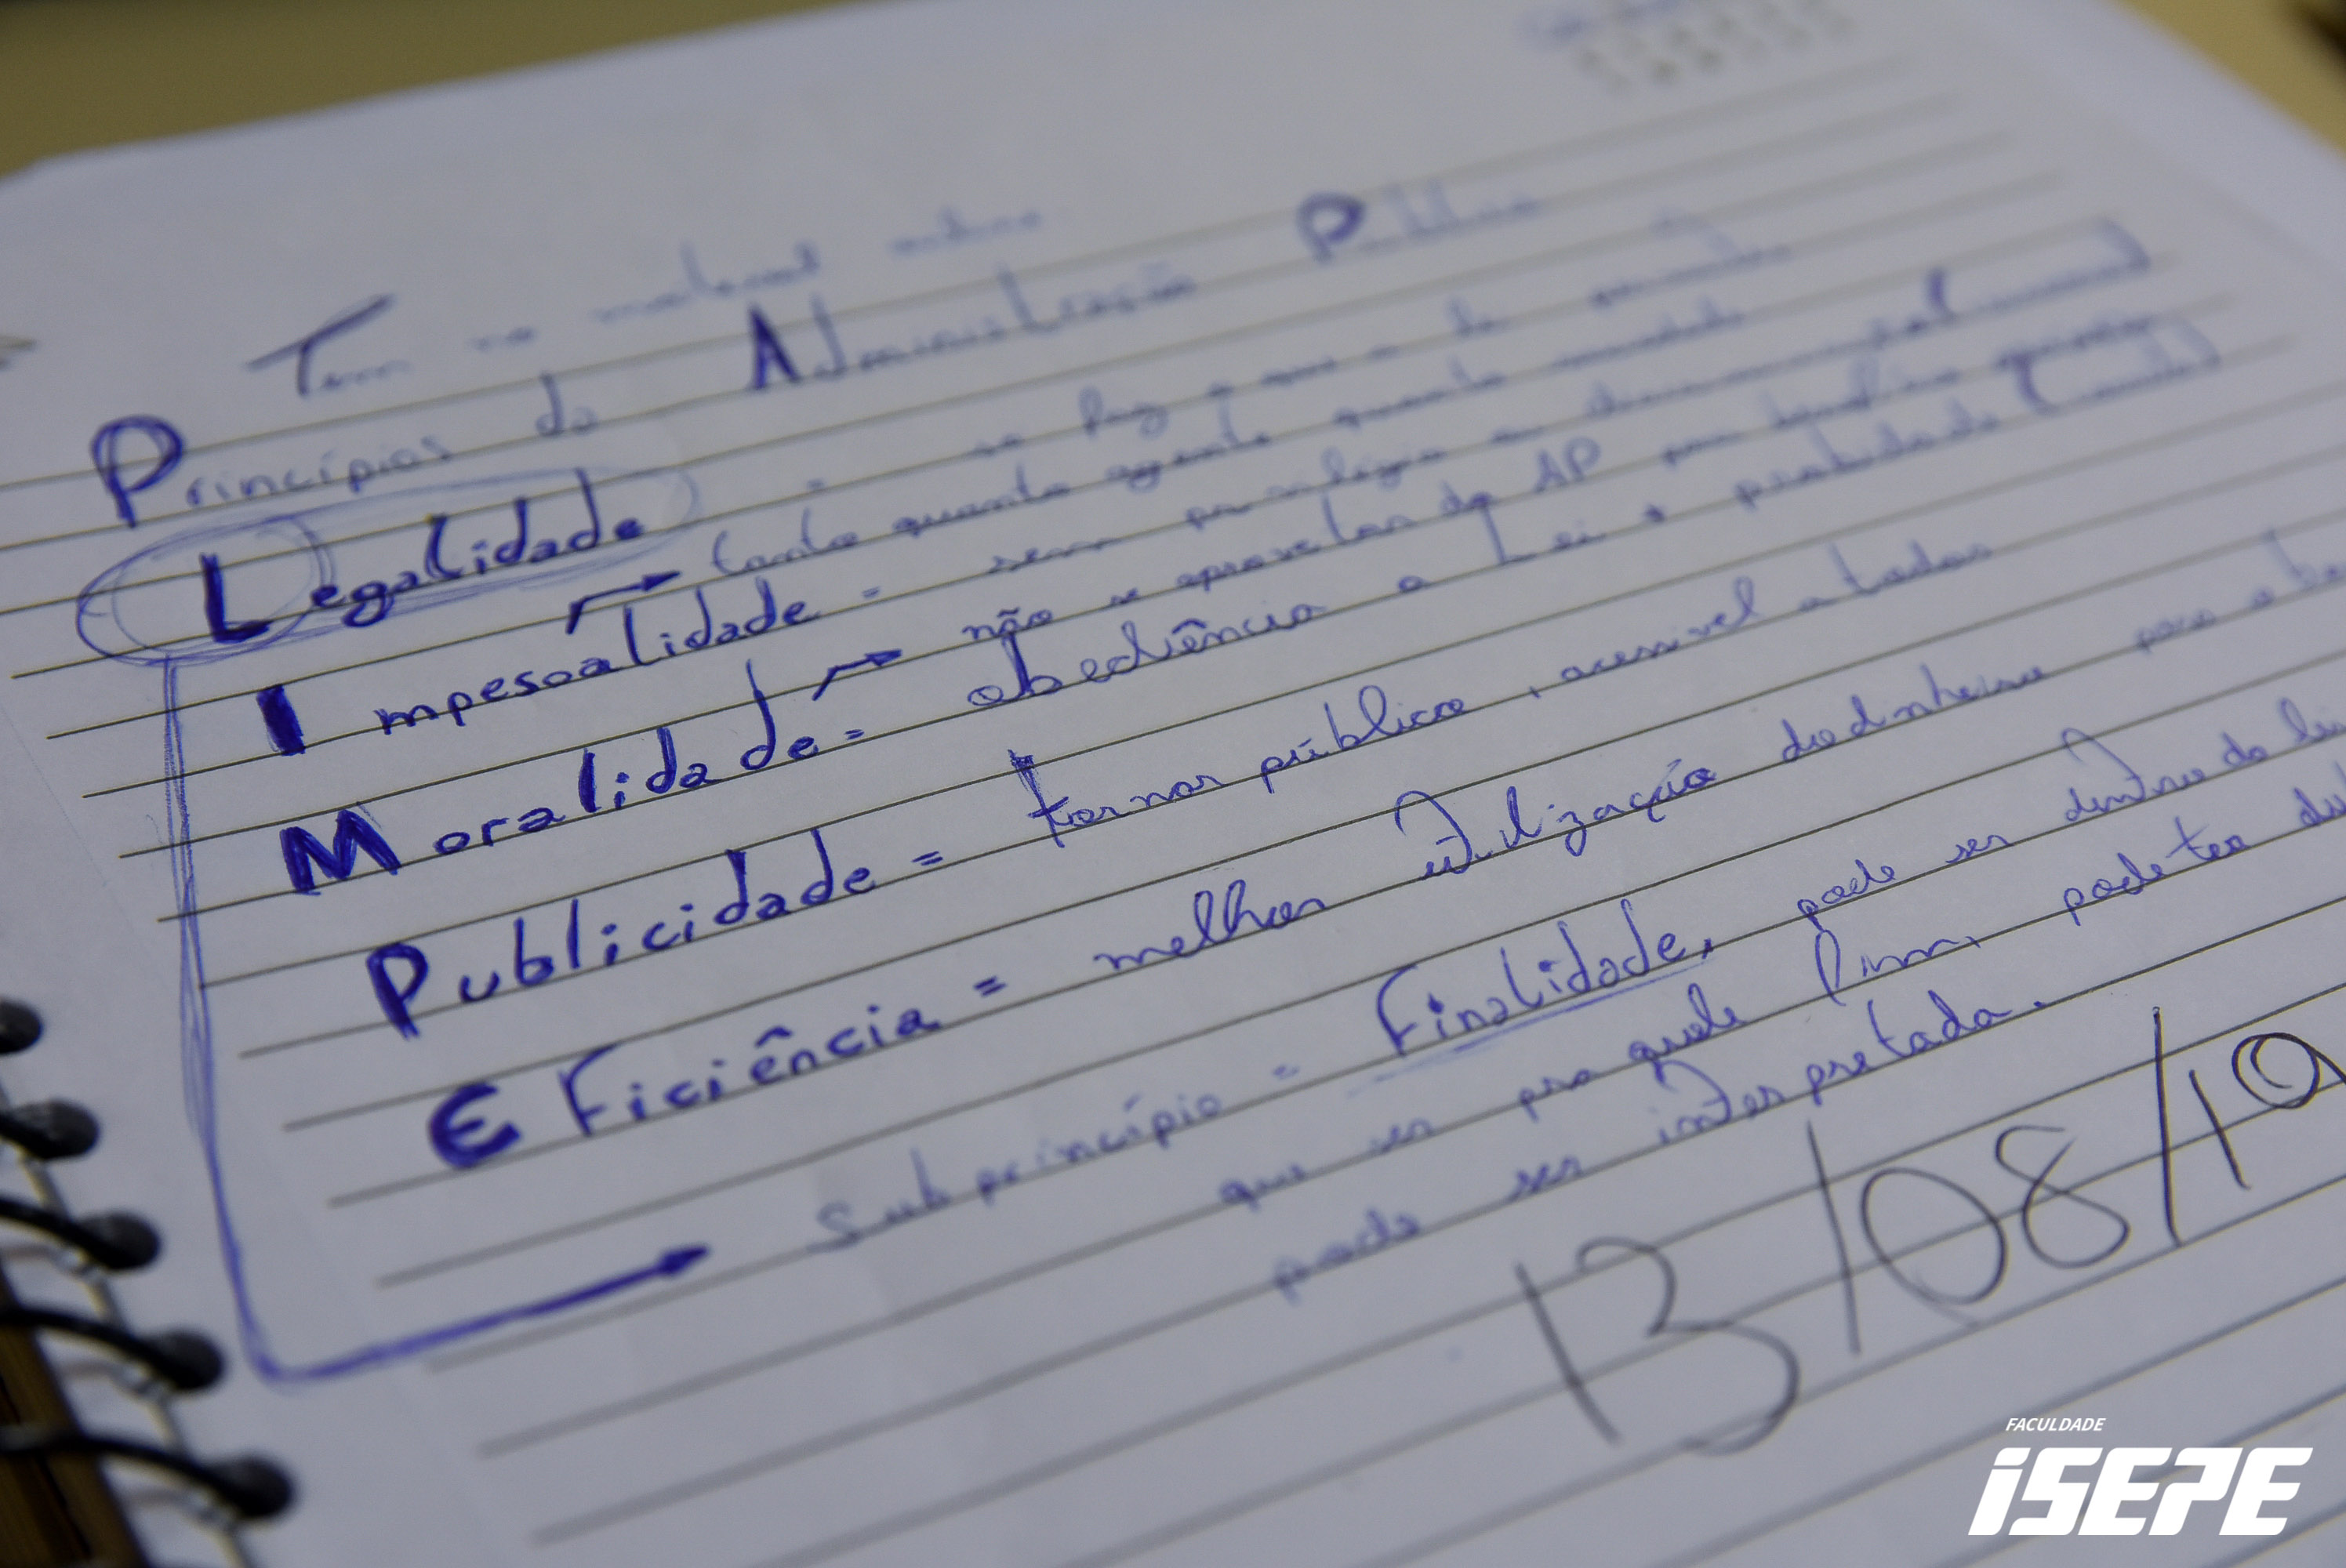 Tem no material online
Princípios da Administração Pública
Legalidade - só faz o que a lei permite
tanto quanto agente quanto
Impesoalidade - sem privilégio ou
não se aproveitar da AP para benefício
Moralidade = obediência a Lei + probidade
Publicidade = tornar público, acessível a todos
Eficiência = melhor utilização do dinheiro para
Subprincípio = Finalidade, pode ser dentro da lei
que ser pra quele fim, pode ter
pode ser interpretada.
13/08/19
FACULDADE
ISEPE